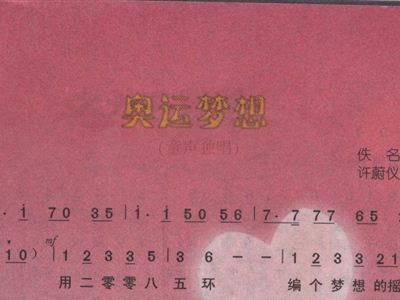 奥运梦想
(童声独唱)
佚名
许蔚仪
· i 70 35 | i · i 50 56 | 7 · 7 777 65
10) mf | 1 2 3 3 5 | 3 6 — — | 1 2 3 3 2 1
用二零零八五环 编个梦想的摇